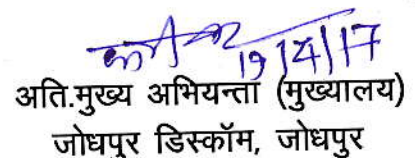 19/4/17
अति.मुख्य अभियन्ता (मुख्यालय)
जोधपुर डिस्कॉम, जोधपुर